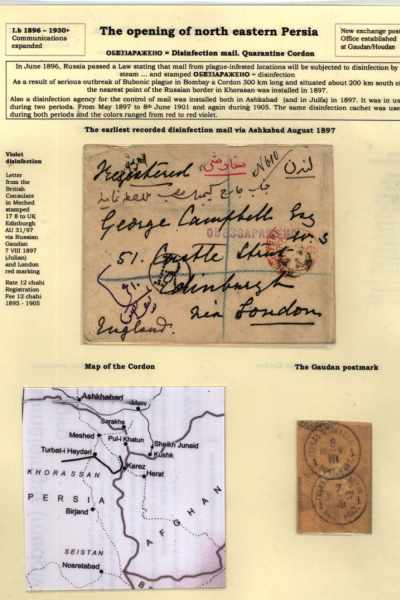 I.b 1896 – 1930+
Communications
expanded
The opening of north eastern Persia
ОБЕЗЗАРАЖЕНО = Disinfection mail. Quarantine Cordon
New exchange post
Office established
at Gaudan/Houdan
In June 1896, Russia passed a Law stating that mail from plague-infested locations will be subjected to disinfection by
steam ... and stamped ОБЕЗЗАРАЖЕНО = disinfection
As a result of serious outbreak of Bubonic plague in Bombay a Cordon 300 km long and situated about 200 km south of
the nearest point of the Russian border in Khorasan was installed in 1897.
Also a disinfection agency for the control of mail was installed both in Ashkabad (and in Julfa) in 1897. It was in use
during two periods. From May 1897 to 8th June 1901 and again during 1905. The same disinfection cachet was used
during both periods and the colors ranged from red to red violet.
The earliest recorded disinfection mail via Ashkabad August 1897
Violet
disinfection
Letter
from the
British
Consulate
in Meched
stamped
17 8 to UK
Edinburgh
AU 31/97
via Russian
Gaudan
7 VIII 1897
(Julian)
and London
red marking
Rate 12 chahi
Registration
Fee 12 chahi
1895 - 1905
Registered
سفارشی
لندن
George Campbell Esq
ОБЕЗЗАРАЖЕНО
51. Castle Street
Edinburgh
via London
England.
Map of the Cordon
The Gaudan postmark
Ashkhabad
Merv
Sarakhs
Meshed
Pul-i Khatun
Sheikh Junaid
Turbat-i Haydari
Kushk
Karez
KHORASSAN
Herat
PERSIA
Birjand
AFGHAN
SEISTAN
Nosretabad